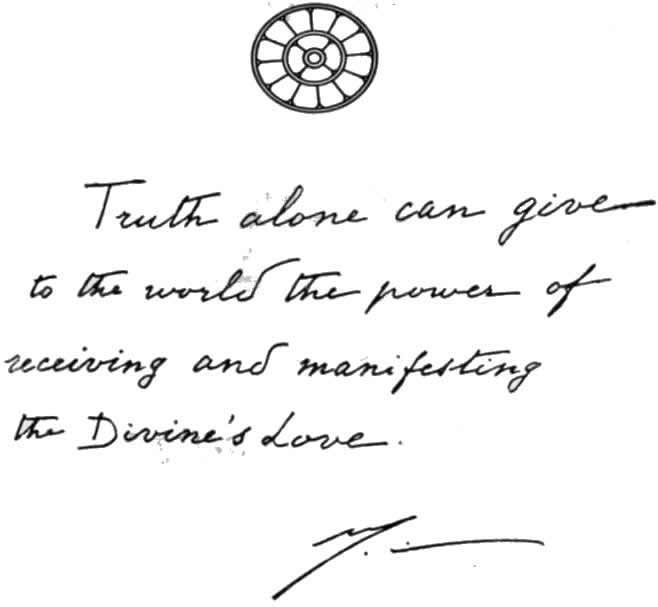 Truth alone can give
to the world the power of
receiving and manifesting
the Divine's Love.